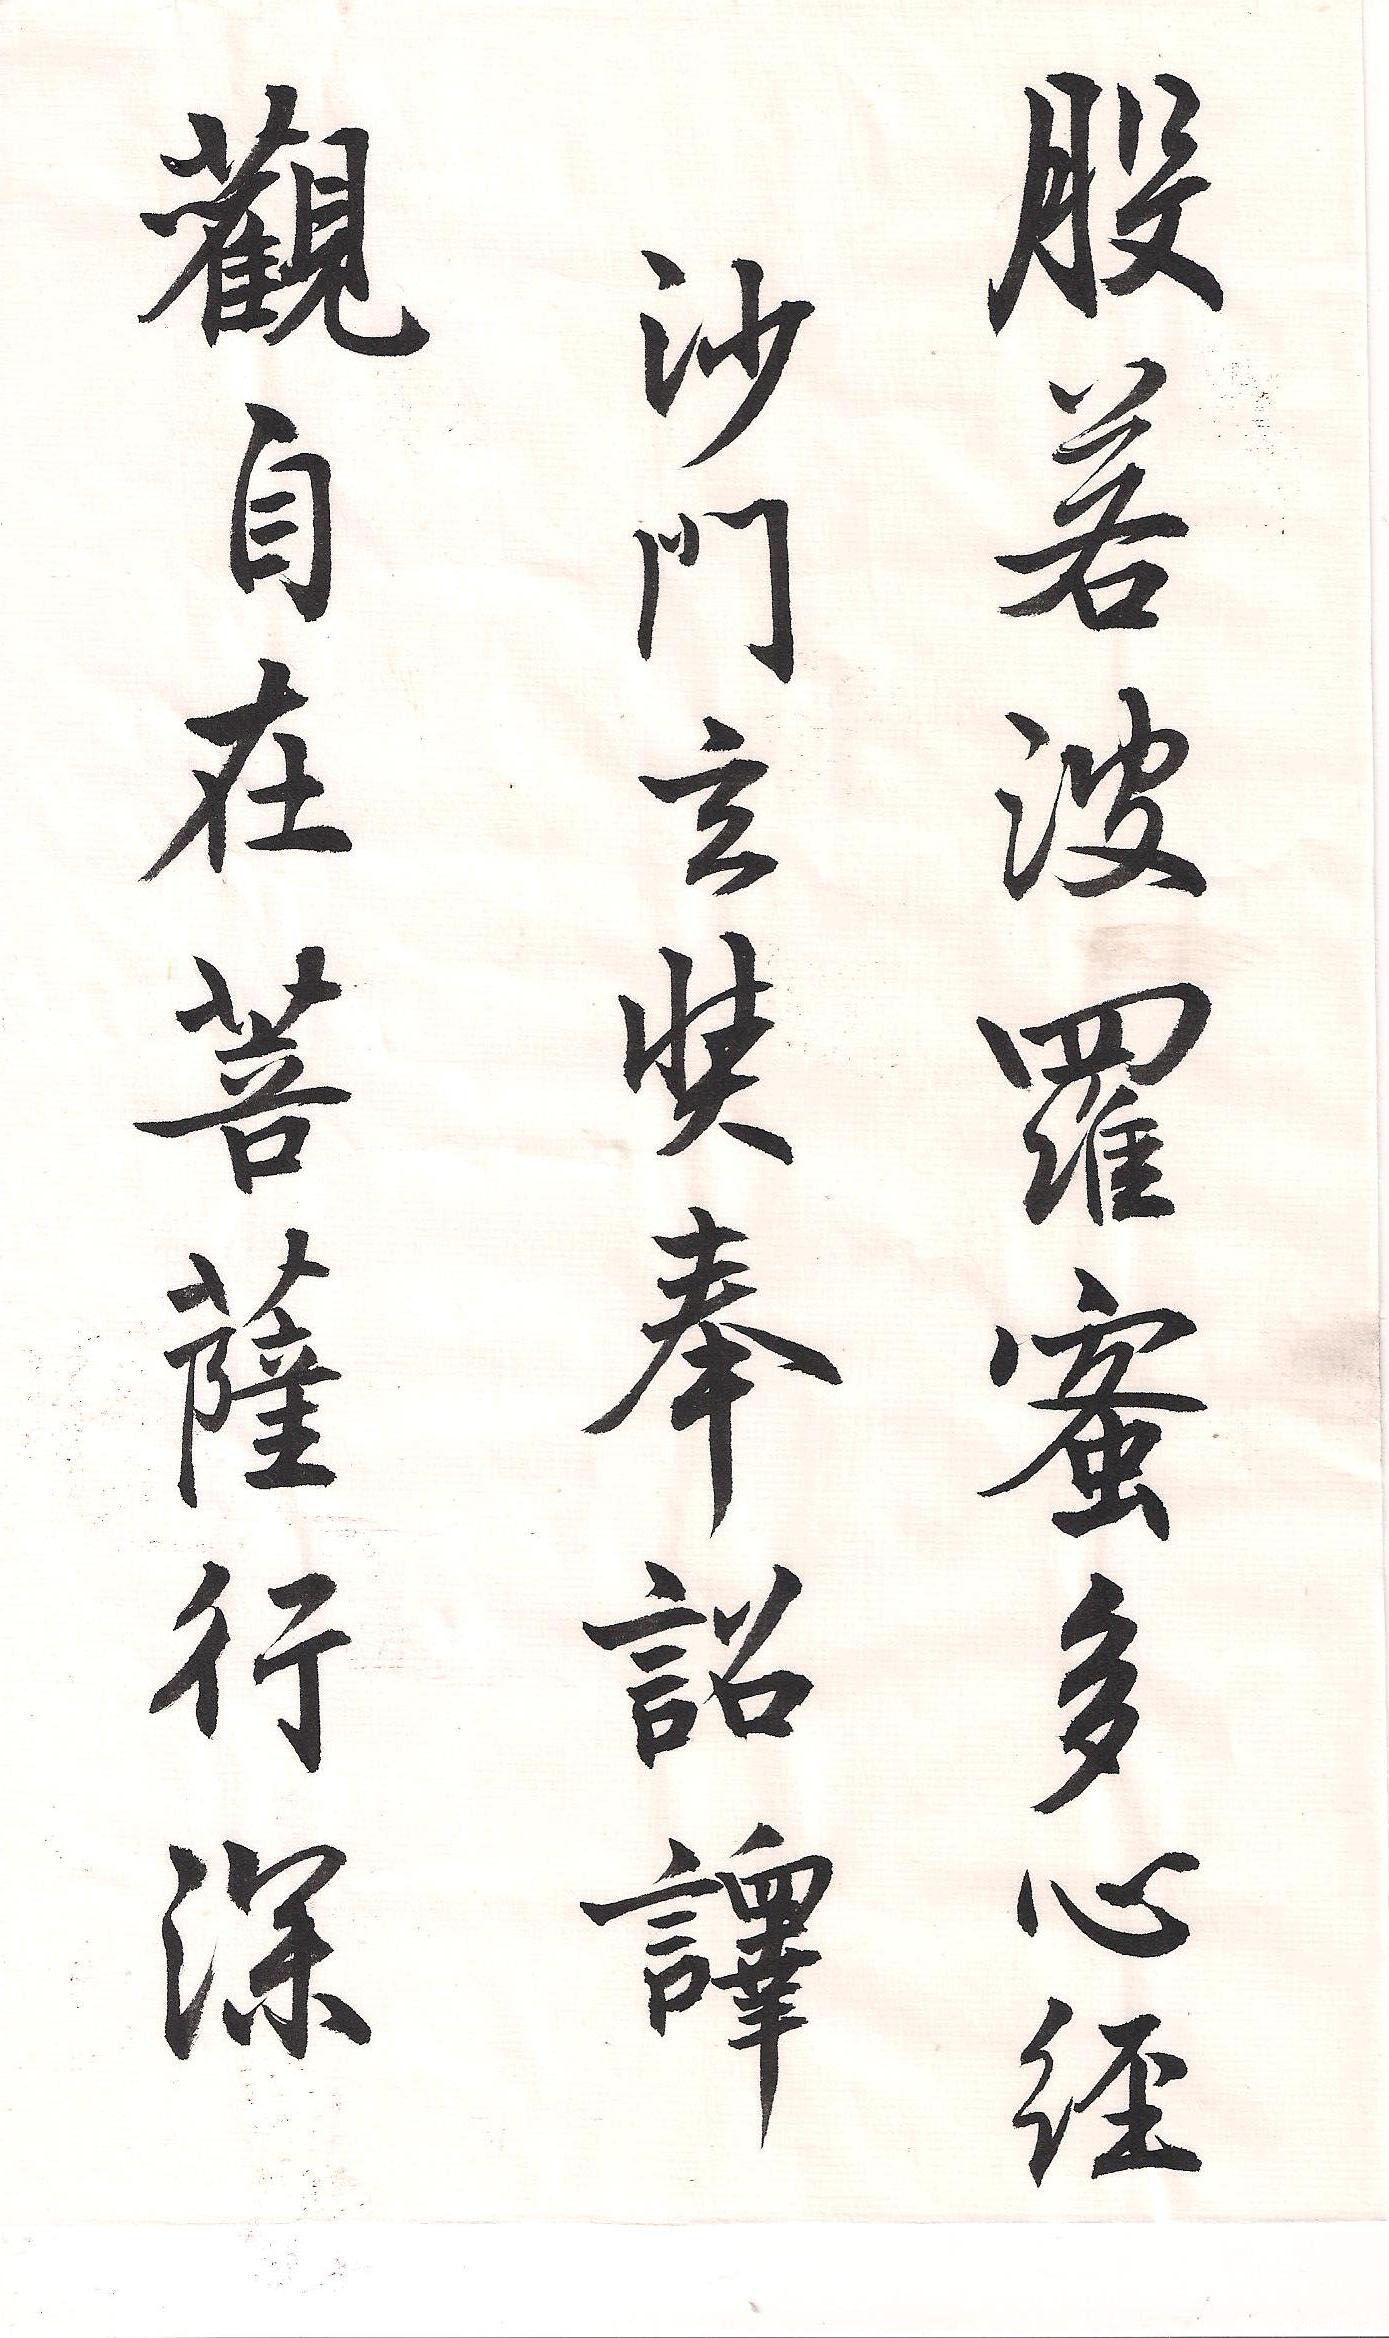 般若波羅蜜多心經
沙門玄奘奉詔譯
觀自在菩薩行深